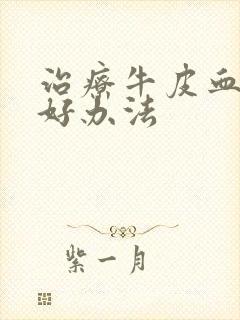 治疗牛皮血
好办法
紫一月